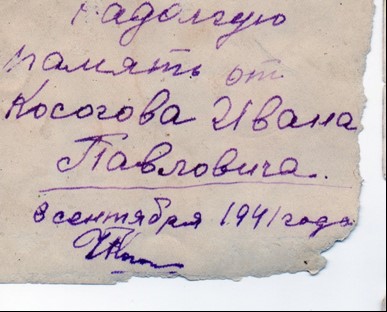 надолгую
память от
Косогова Ивана
Павловича.
8 сентября 1941 года